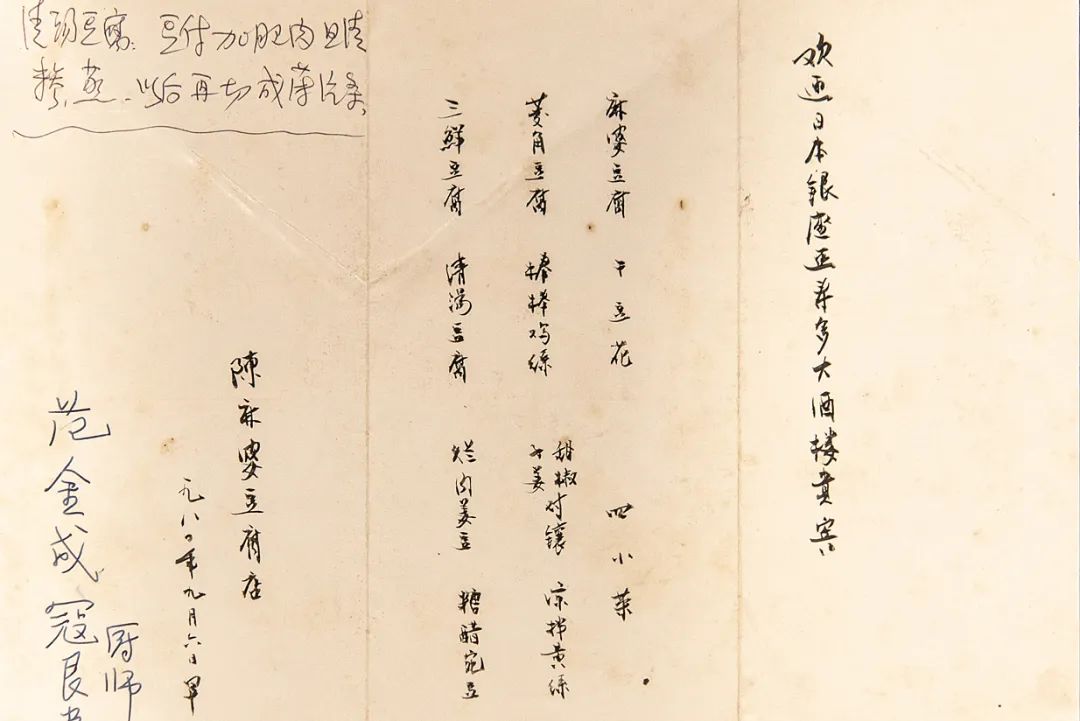 欢迎日本银座正寿多大酒楼贵宾
麻婆豆腐 干豆花 四小菜
菱角豆腐 棒棒鸡絲 甜椒 子姜 对镶 凉拌黄絲
三鲜豆腐 清湯豆腐 烂肉姜豆 糖醋宛豆
陳麻婆豆腐店
一九八〇年九月六日早
清汤豆腐: 豆付加肥肉旦清
蒸.以后再切成薄片
厨师
范金成 寇良